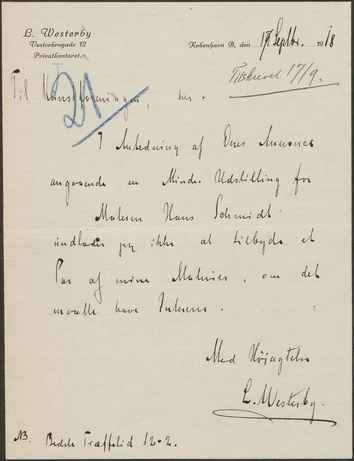 L. Westerby
Vesterbrogade 12
Privatkontoret.
København B, den 17 Septbr. 1918
17/9.
21
Til Kunstforeningen, her.
I Anledning af Deres Annonce
angaaende en Minde Udstilling for
Maleren Hans Schmidt
undlader jeg ikke at tilbyde et
Par af mine Malerier, om det
maatte have Interesse.
Med Højagtelse
L. Westerby.
NB. Bedste Træffetid 12-2.